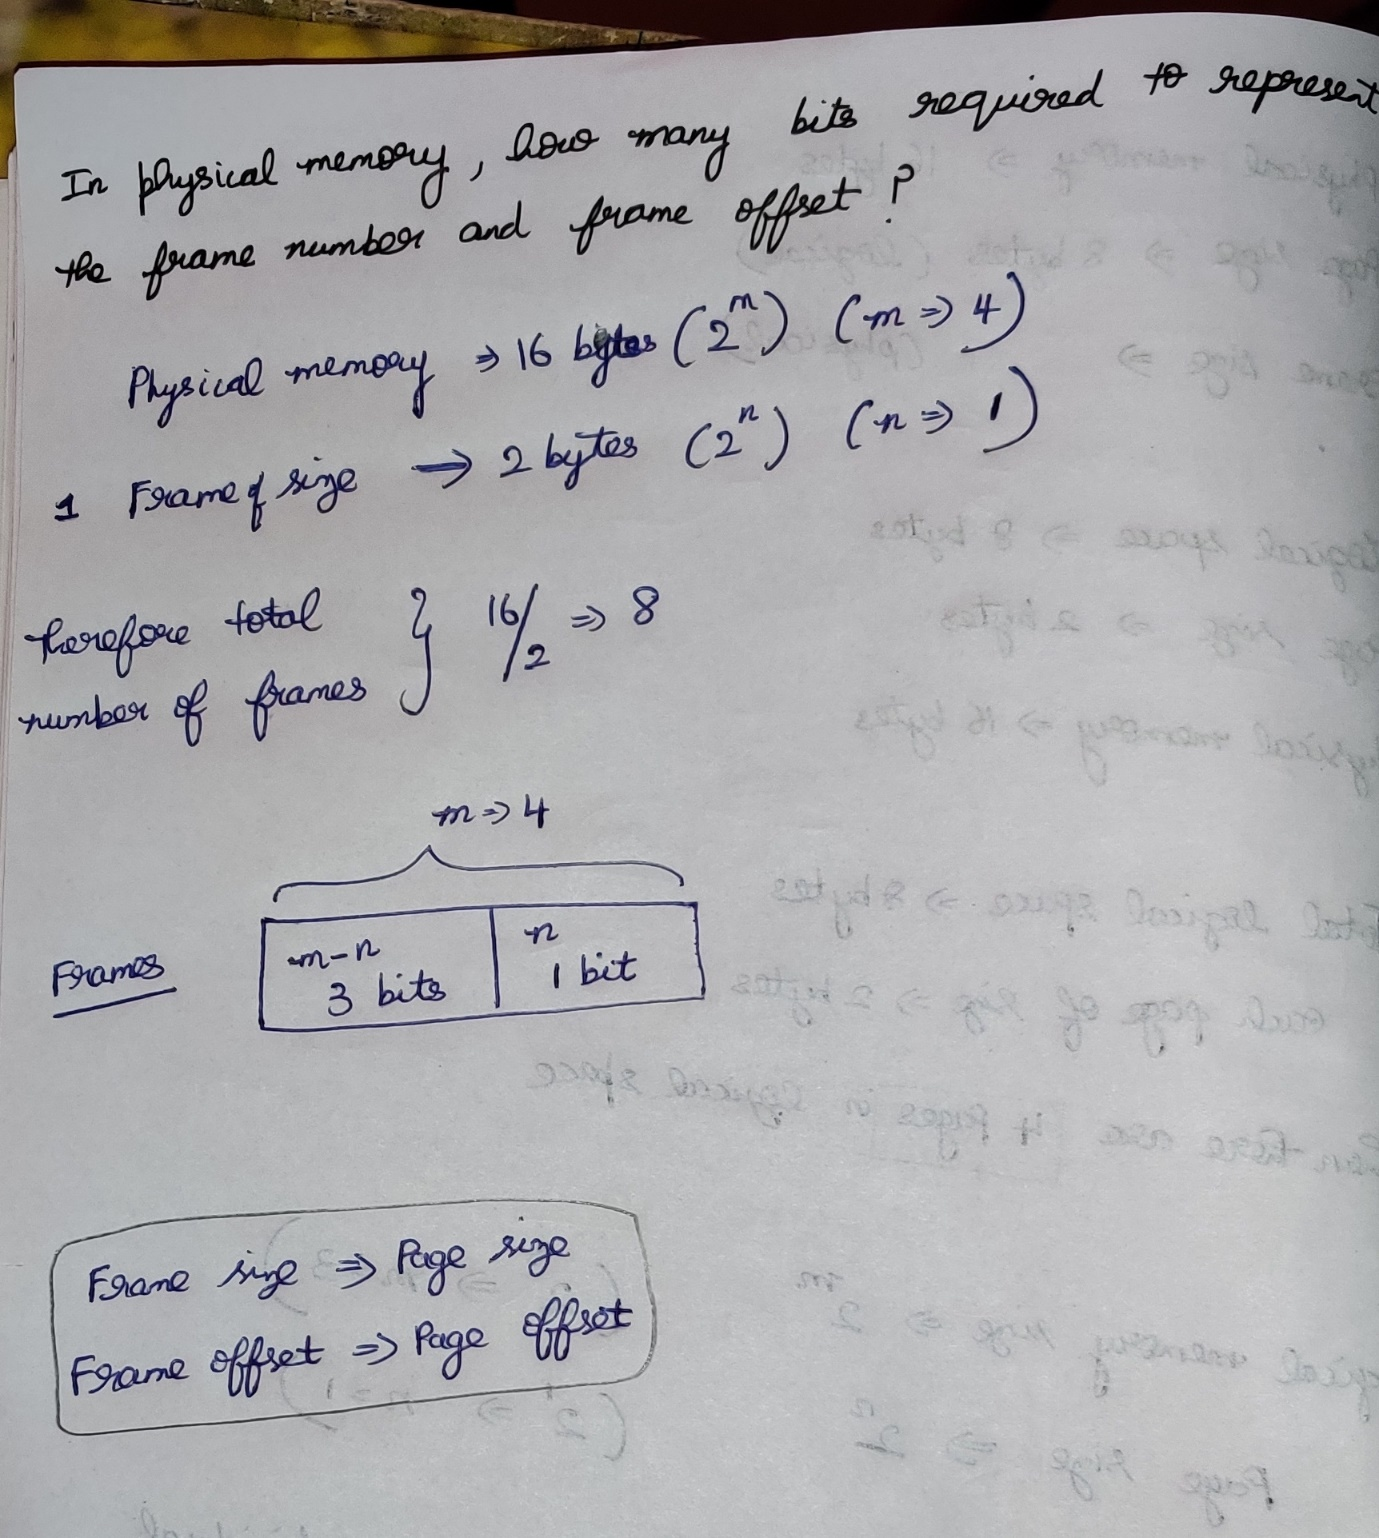 In physical memory, how many bits required to represent
the frame number and frame offset ?
Physical memory ⇒ 16 bytes (2^m) (m ⇒ 4)
1 Frame of size → 2 bytes (2^n) (n ⇒ 1)
therefore total } 16/2 ⇒ 8
number of frames
m ⇒ 4
Frames
m-n n
3 bits 1 bit
Frame size ⇒ Page size
Frame offset ⇒ Page offset